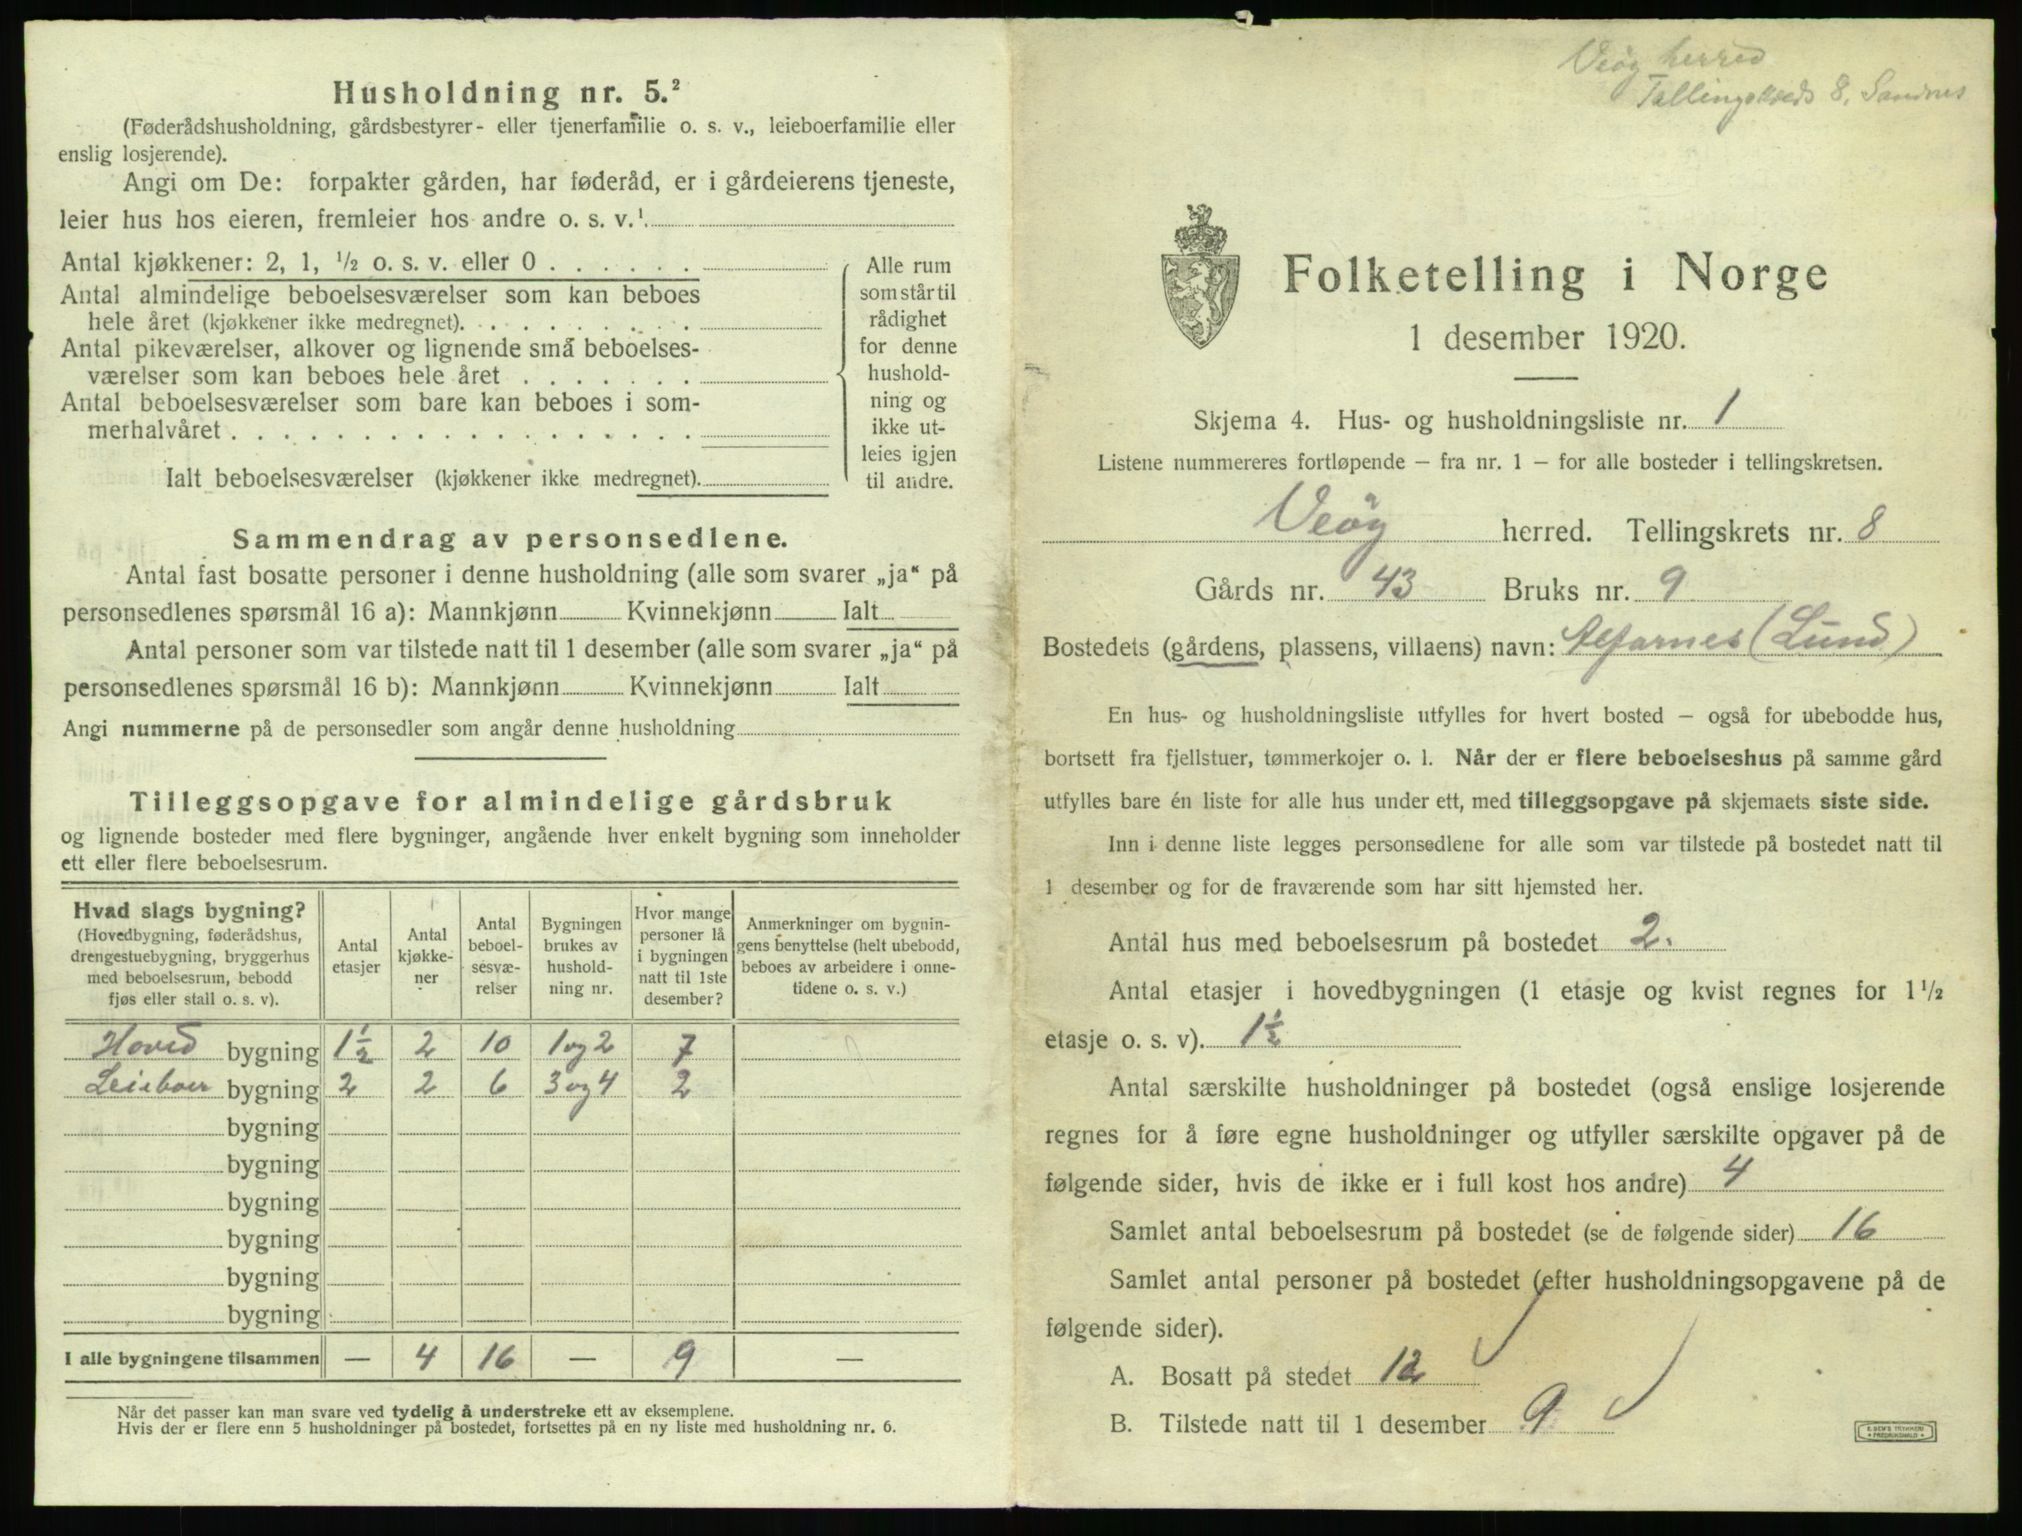 Husholdning nr. 5.²
(Føderådshusholdning, gårdsbestyrer- eller tjenerfamilie o. s. v., leieboerfamilie eller
enslig losjerende).
Angi om De: forpakter gården, har føderåd, er i gårdeierens tjeneste,
leier hus hos eieren, fremleier hos andre o. s. v.¹
Antal kjøkkener: 2, 1, ½ o. s. v. eller 0
Antal almindelige beboelsesværelser som kan beboes
hele året (kjøkkener ikke medregnet).
Antal pikeværelser, alkover og lignende små beboelses-
værelser som kan beboes hele året
Antal beboelsesværelser som bare kan beboes i som-
merhalvåret
Ialt beboelsesværelser (kjøkkener ikke medregnet).
Alle rum
som står til
rådighet
for denne
hushold-
ning og
ikke ut-
leies igjen
til andre.
Sammendrag av personsedlene.
Antal fast bosatte personer i denne husholdning (alle som svarer „ja“ på
personsedlenes spørsmål 16 a): Mannkjønn Kvinnekjønn Ialt
Antal personer som var tilstede natt til 1 desember (alle som svarer „ja“ på
personsedlenes spørsmål 16 b): Mannkjønn Kvinnekjønn Ialt
Angi nummerne på de personsedler som angår denne husholdning
Tilleggsopgave for almindelige gårdsbruk
og lignende bosteder med flere bygninger, angående hver enkelt bygning som inneholder
ett eller flere beboelsesrum.
Hvad slags bygning?
(Hovedbygning, føderådshus,
drengestuebygning, bryggerhus
med beboelsesrum, bebodd
fjøs eller stall o. s. v).
Antal
etasjer
Antal
kjøkke-
ner
Antal
beboel-
sesvæ-
relser
Bygningen
brukes av
hushold-
ning nr.
Hvor mange
personer lå
i bygningen
natt til 1ste
desember?
Anmerkninger om bygnin-
gens benyttelse (helt ubebodd,
beboes av arbeidere i onne-
tidene o. s. v.)
Hoved bygning 1½ 2 10 1 og 2 7
Leieboer bygning 2 2 6 3 og 4 2
bygning
bygning
bygning
bygning
bygning
bygning
I alle bygningene tilsammen — 4 16 — 9 —
Når det passer kan man svare ved tydelig å understreke ett av eksemplene.
Hvis der er flere enn 5 husholdninger på bostedet, fortsettes på en ny liste med husholdning nr. 6.
Veøy herred
8, Sandnes
Folketelling i Norge
1 desember 1920.
Skjema 4. Hus- og husholdningsliste nr. 1
Listene nummereres fortløpende – fra nr. 1 – for alle bosteder i tellingskretsen.
Veøy herred. Tellingskrets nr. 8
Gårds nr. 43 Bruks nr. 9
Bostedets (gårdens, plassens, villaens) navn: Alfarnes (Lund)
En hus- og husholdningsliste utfylles for hvert bosted – også for ubebodde hus,
bortsett fra fjellstuer, tømmerkojer o. l. Når der er flere beboelseshus på samme gård
utfylles bare én liste for alle hus under ett, med tilleggsopgave på skjemaets siste side.
Inn i denne liste legges personsedlene for alle som var tilstede på bostedet natt til
1 desember og for de fraværende som har sitt hjemsted her.
Antal hus med beboelsesrum på bostedet 2.
Antal etasjer i hovedbygningen (1 etasje og kvist regnes for 1½
etasje o. s. v). 1½
Antal særskilte husholdninger på bostedet (også enslige losjerende
regnes for å føre egne husholdninger og utfyller særskilte opgaver på de
følgende sider, hvis de ikke er i full kost hos andre) 4
Samlet antal beboelsesrum på bostedet (se de følgende sider) 16
Samlet antal personer på bostedet (efter husholdningsopgavene på de
følgende sider).
A. Bosatt på stedet 12
B. Tilstede natt til 1 desember 9